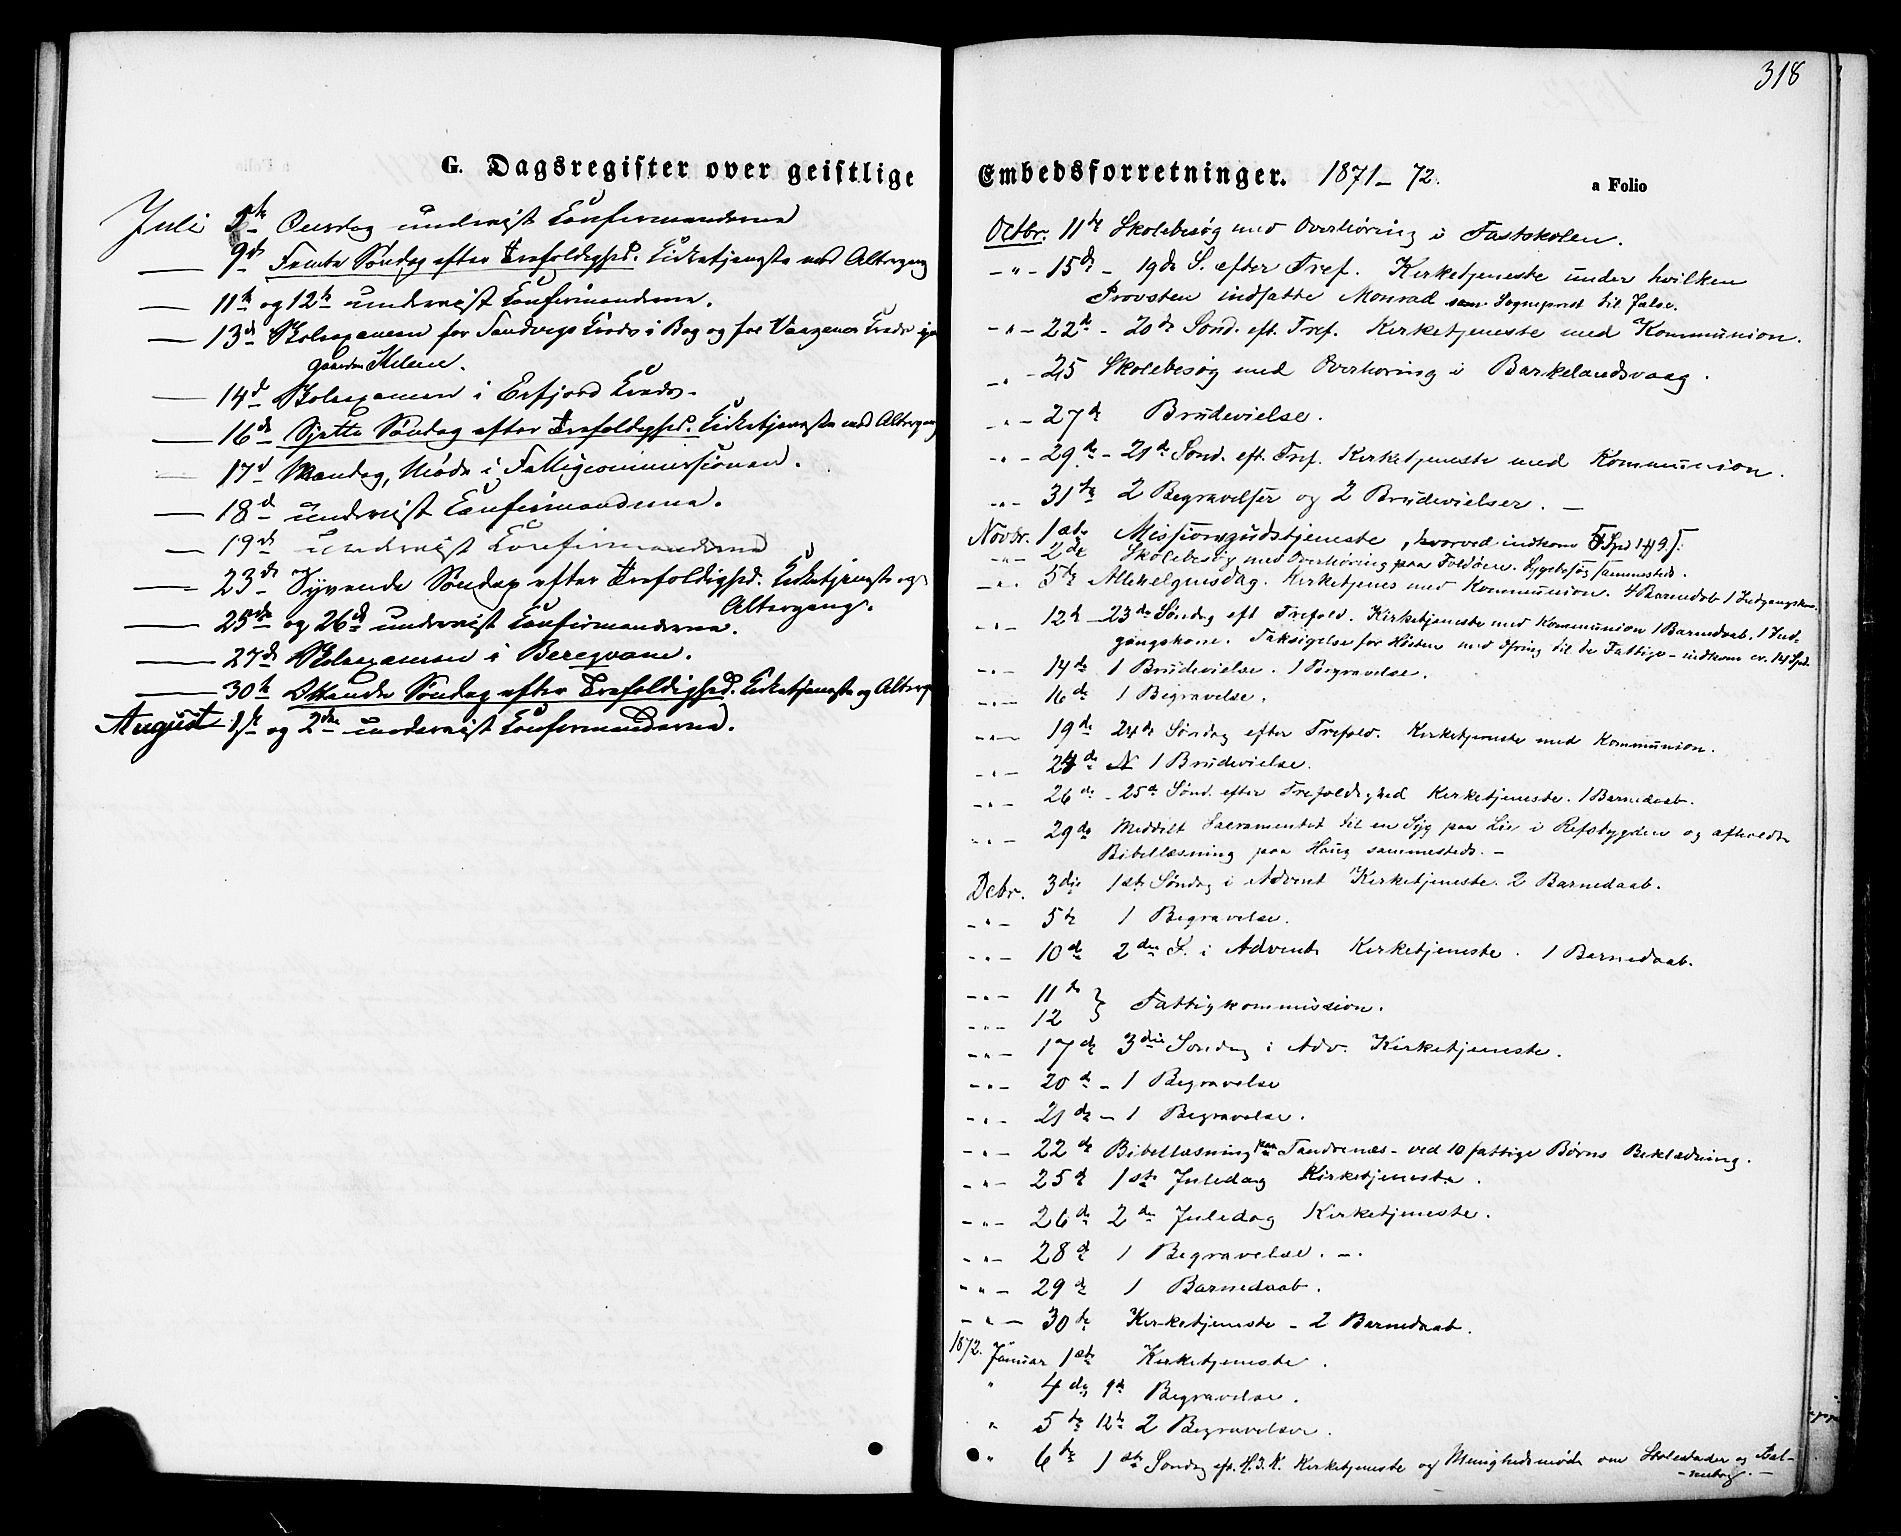 318
G. Dagsregister over geistlige
Juli 5te Onsdag undervist Confirmanderne
9de Femte Søndag efter Trefoldighed. Kirketjeneste med Altergang
11te og 12te undervist Confirmanderne.
13de Skoleexamen for Sandvigs Kreds i Bog og for Vaagenes Kreds i
gaarden Helene.
14de Skoleexamen i Erfjord Kreds.
16de Sjette Søndag efter Trefoldighed. Kirketjeneste med Altergang
17de Mandag, Møde i Fattigcommissionen.
18de undervist Confirmanderne.
19de undervist Confirmanderne
23de Syvende Søndag efter Trefoldighed. Kirketjeneste og
Altergang.
25de og 26de undervist Confirmanderne.
27de Skoleexamen i
30te Ottende Søndag efter Trefoldighed. Kirketjeneste og Alterg
August 1ste og 2den undervist Confirmanderne.
Embedsforretninger. 1871-72.
a Folio
Octbr. 11te Skolebesøg med Overhøring i Fastskolen.
-"- 15de - 19de S. efter Tref. Kirketjeneste under hvilken
Provsten indsatte Monrad som Sogneprest til Jelse.
-"- 22de - 20de Sønd. eft. Tref. Kirketjeneste med Kommunion.
-"- 25 Skolebesøg med Overhøring i Barkelandsvaag.
-"- 27de Brudevielse.
-"- 29de - 21de Sønd. eft. Tref. Kirketjeneste med Kommunion.
-"- 31te 2 Begravelser og 2 Brudevielser. -
Novbr. 1ste Missionsgudstjeneste, hvorved indkom
-"- 2de Skolebesøg med Overhøring paa Foldøen. Sygebesøg sammesteds.
-"- 5te Allehelgensdag. Kirketjenes med Kommunion. 4 Barnedåb 1 Indgangskone
-"- 12te - 23de Søndag eft Trefold. Kirketjeneste med Kommunion 1 Barnedaab. 1 Ind-
gangskone. Taksigelse for Høsten med Ofring til de Fattige - indkom cr. 14 Spd.
-"- 14de 1 Brudevielse. 1 Begravelse.
-"- 16de 1 Begravelse.
-"- 19de 24de Søndag efter Trefold. Kirketjeneste med Kommunion.
-"- 24de 1 Brudevielse.
-"- 26de - 25de Sønd. efter Trefoldighed Kirketjeneste. 1 Barnedaab.
-"- 29de Meddelt Sacramentet til en Syg paa Lie i Refsbygden og afholdt
Bibellæsning paa Haug sammesteds. -
Debr. 3die 1ste Søndag i Advent Kirketjeneste. 2 Barnedaab.
-"- 5te 1 Begravelse.
-"- 10de 2den S. i Advent Kirketjeneste. 1 Barnedaab.
-"- 11te
-"- 12 } Fattigkommission.
-"- 17de 3die Søndag i Adv. Kirketjeneste.
-"- 20de - 1 Begravelse
-"- 21de - 1 Begravelse.
-"- 22de Bibellæsning paa Sandsnæs - ved 10 fattige Børns Beklædning.
-"- 25de 1ste Juledag Kirketjeneste.
-"- 26de 2den Juledag Kirketjeneste.
-"- 28de 1 Begravelse. -.
-"- 29de 1 Barnedaab.
-"- 30te Kirketjeneste - 2 Barnedaab.
1872. Januar 1ste Kirketjeneste.
" 4de Begravelse.
" 5te 2 Begravelser.
" 6te 1ste Søndag eft. H.3.K. Kirketjeneste og Menighedsmøde om